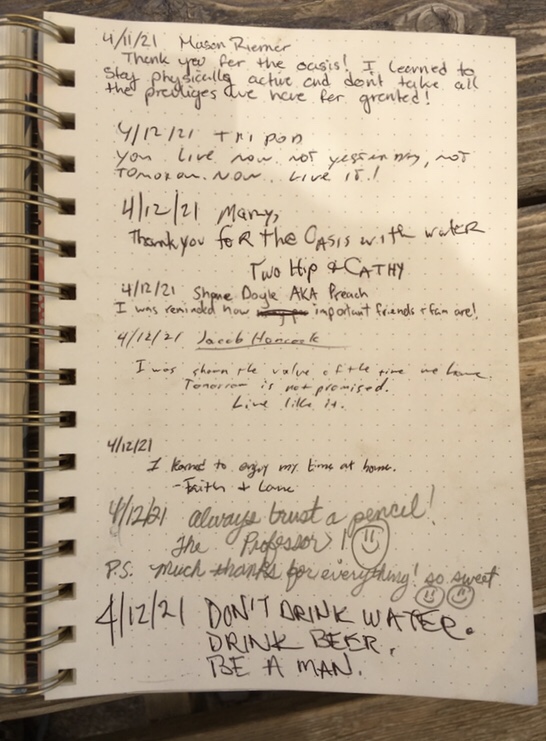 4/11/21 Mason Riemer
Thank you fer the oasis! I learned to
stay physically active and dont take all
the previliges we have fer granted!
4/12/21 tripod
you live now. not yesterday, not
tomorrow. Now. Live it!
4/12/21 Mary,
Thank you foR the OASIS with water
Two Hip & CATHY
4/12/21 Shane Doyle AKA Preach
I was reminded how important friends + fam are!
4/12/21 Jacob Hancock
I was shown the value of the time we have.
Tomorrow is not promised.
Live like it.
4/12/21
I learned to enjoy my time at home.
-Faith + Lane
4/12/21 always trust a pencil!
The Professor!
P.S. much thanks for everything! so sweet
4/12/21 DON'T DRINK WATER.
DRINK BEER.
BE A MAN.